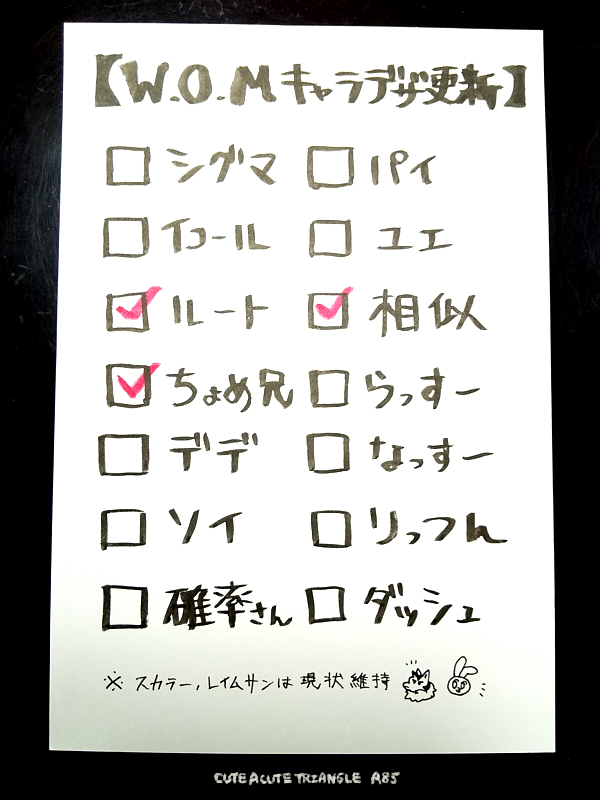 【W.O.Mキャラデザ更新】
シグマ パイ
イコール ユエ
ルート 相似
ちょめ兄 らっすー
デデ なっすー
ソイ りっつん
確率さん ダッシュ
※ スカラー, レイムサンは現状維持
CUTEACUTETRIANGLE A85